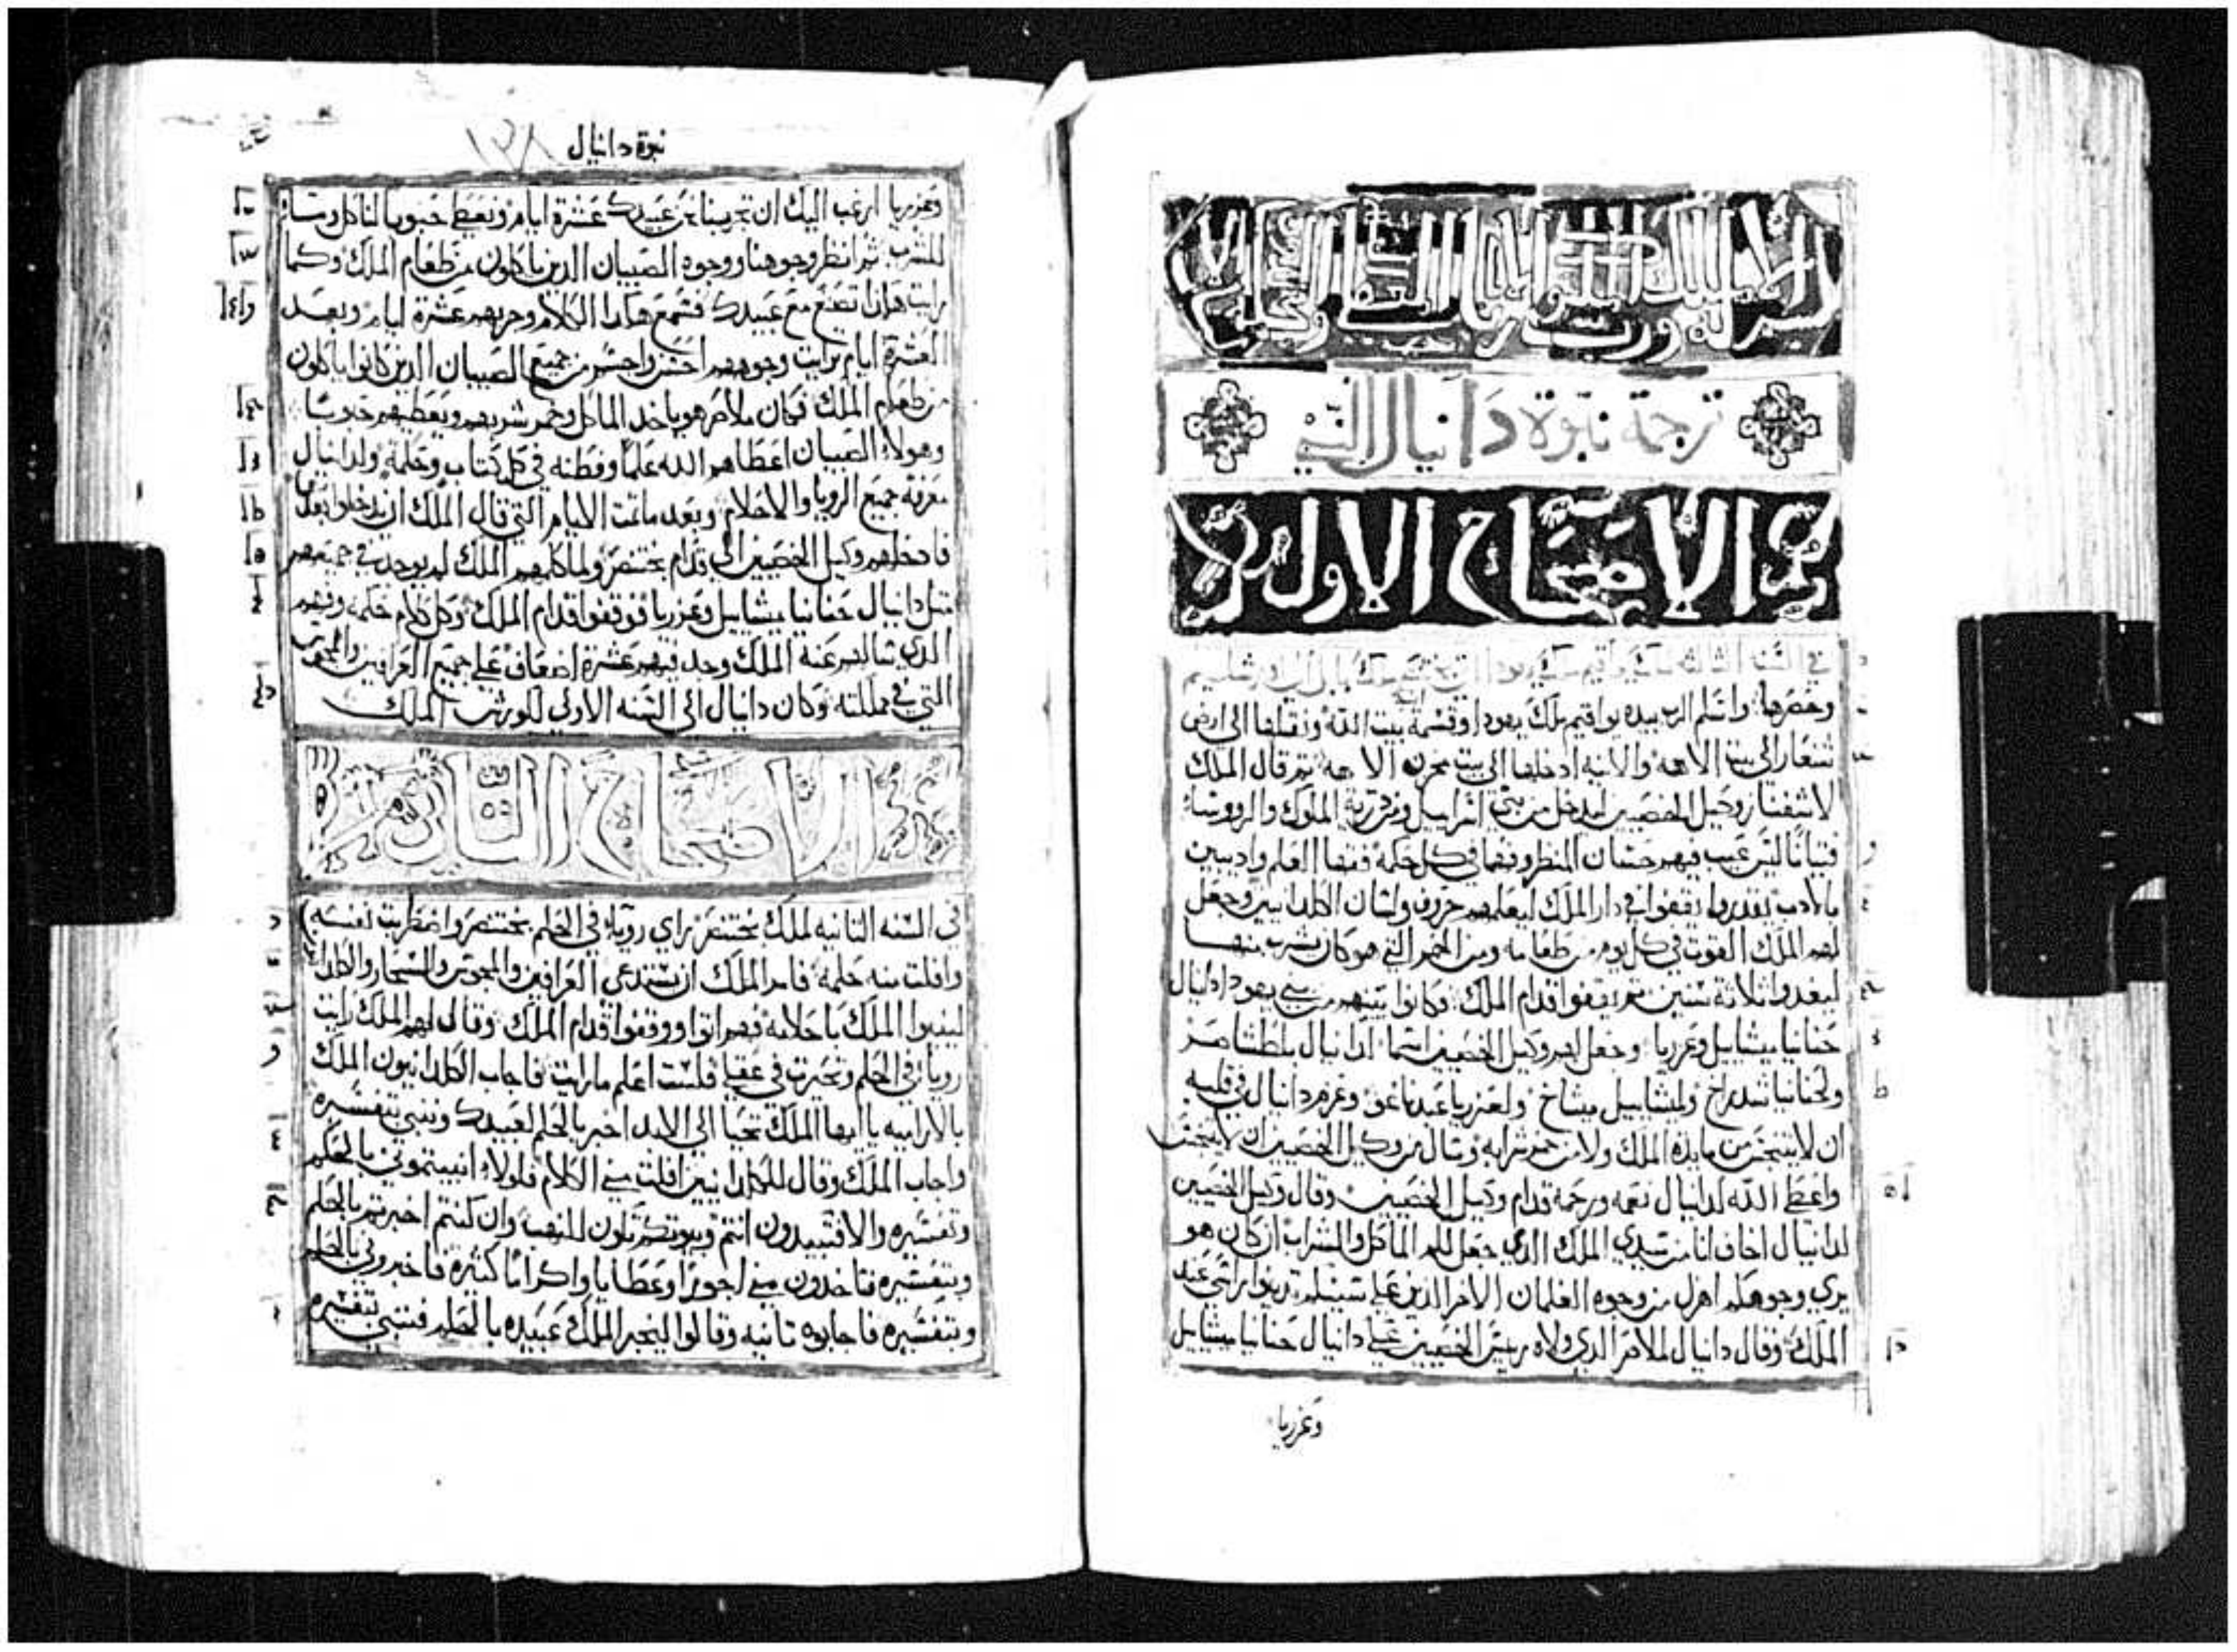 ترجمة نبوة دانيال النبي
الاصحاح الاول
في السنة الثالثة
وحصرها واسلم الرب بيده يواقيم ملك يهودا وقسمة انية بيت الله ونقلها الى ارض
شنعار الى بيت الاهه والانيه ادخلها الى بيت مخزن الاهه ثم قال الملك
لاشفناز وكيل الخصيين ليدخل من بني اسراييل ومن ذرية الملوك والرووساء
فتيانا ليس عيب فيهم حسان المنظر وفقها في كل حكمة فقها العلم واديبين
بالادب تقدروا يقفوا في دار الملك ليعلمهم حروف ولسان الكلدانيين وجعل
لهم الملك القوت في كل يوم من طعامه ومن الخمر التي هو كان يشرب منها
ليغدوا ثلاثة سنين ثم يقفوا قدام الملك فكانوا بينهم من بني يهودا دانيال
حنانيا ميشاييل وعزريا وجعل لهم وكيل الخصيين اسما لدانيال بلطشاصر
ولحنانيا شدراخ ولميشاييل ميشاخ ولعزريا عبدناغو وعزم دانيال في قلبه
ان لا يتنجس من مايدة الملك ولا من خمر شرابه وسال من وكيل الخصيين ان لا يتنجس
واعطى الله لدانيال نعمه ورحمة قدام وكيل الخصيين وقال وكيل الخصيين
لدانيال اخاف انا من سيدي الملك الذي جعل لكم الماكل والشراب ان كان هو
يري وجوهكم اهزل من وجوه الغلمان الاخر الذين على سنكم تدينوا راسي عند
الملك وقال دانيال للامر الذي ولاه رييس الخصيين على دانيال حنانيا ميشاييل
وعزريا
نبوة دانيال ١٣٨
وعزريا ارغب اليك ان تجربنا نحن عبيدك عشرة ايام ونعطى حبوبا لناكل وماء
للشرب ثم انظر وجوهنا ووجوه الصبيان الذين ياكلون من طعام الملك وكما
رايت هاذا تصنع مع عبيدك فسمع هاذا الكلام وجربهم عشرة ايام وبعد
العشرة ايام رايت وجوههم احسن واجسم من جميع الصبيان الذين كانوا ياكلون
من طعام الملك فكان ملاصر هو ياخذ الماكل وخمر شربهم ويعطيهم حبوبا
وهولاء الصبيان اعطاهم الله علما وفطنه في كل كتاب وحكمة ولدانيال
معرفة جميع الرويا والاحلام وبعد ما تمت الايام التي قال الملك ان يدخلوا بعدها
فادخلهم وكيل الخصيين الى قدام بختنصر ولما كلمهم الملك لم يوجد في جميعهم
مثل دانيال حنانيا ميشاييل وعزريا فوقفوا قدام الملك وكل كلام حكمة وفهم
الذي سالهم عنه الملك وجد فيهم عشرة اضعاف على جميع العرافين والمجوس
التي في مملكته وكان دانيال الى السنه الاولى لكورش الملك
الاصحاح الثاني
في السنه الثانيه لملك بختنصر راي رويا في الحلم بختنصر واضطربت نفسه
وافلت منه حلمه فامر الملك ان يستدعى العرافين والمجوس والسحار والكلدانيين
لينبوا الملك باحلامه فهم اتوا ووقفوا قدام الملك وقال لهم الملك رايت
رويا في الحلم وتحيرت في عقلي فلست اعلم ما رايت فاجاب الكلدانيون الملك
بالاراميه يا ايها الملك تحيا الى الابد اخبر بالحلم لعبيدك وننبي بتفسيره
واجاب الملك وقال للكلدانيين افلت مني الكلام فلولا انبيتموني بالحلم
وتفسيره والا فتبيدون انتم وبيوتكم تكون للنهب وان كنتم اخبرتم بالحلم
وبتفسيره فتاخذون مني اجورا وعطايا واكراما كثيرة فاخبروني بالحلم
وبتفسيره فاجابوه ثانيه وقالوا ليخبر الملك عبيده بالحلم فننبي بتفسيره